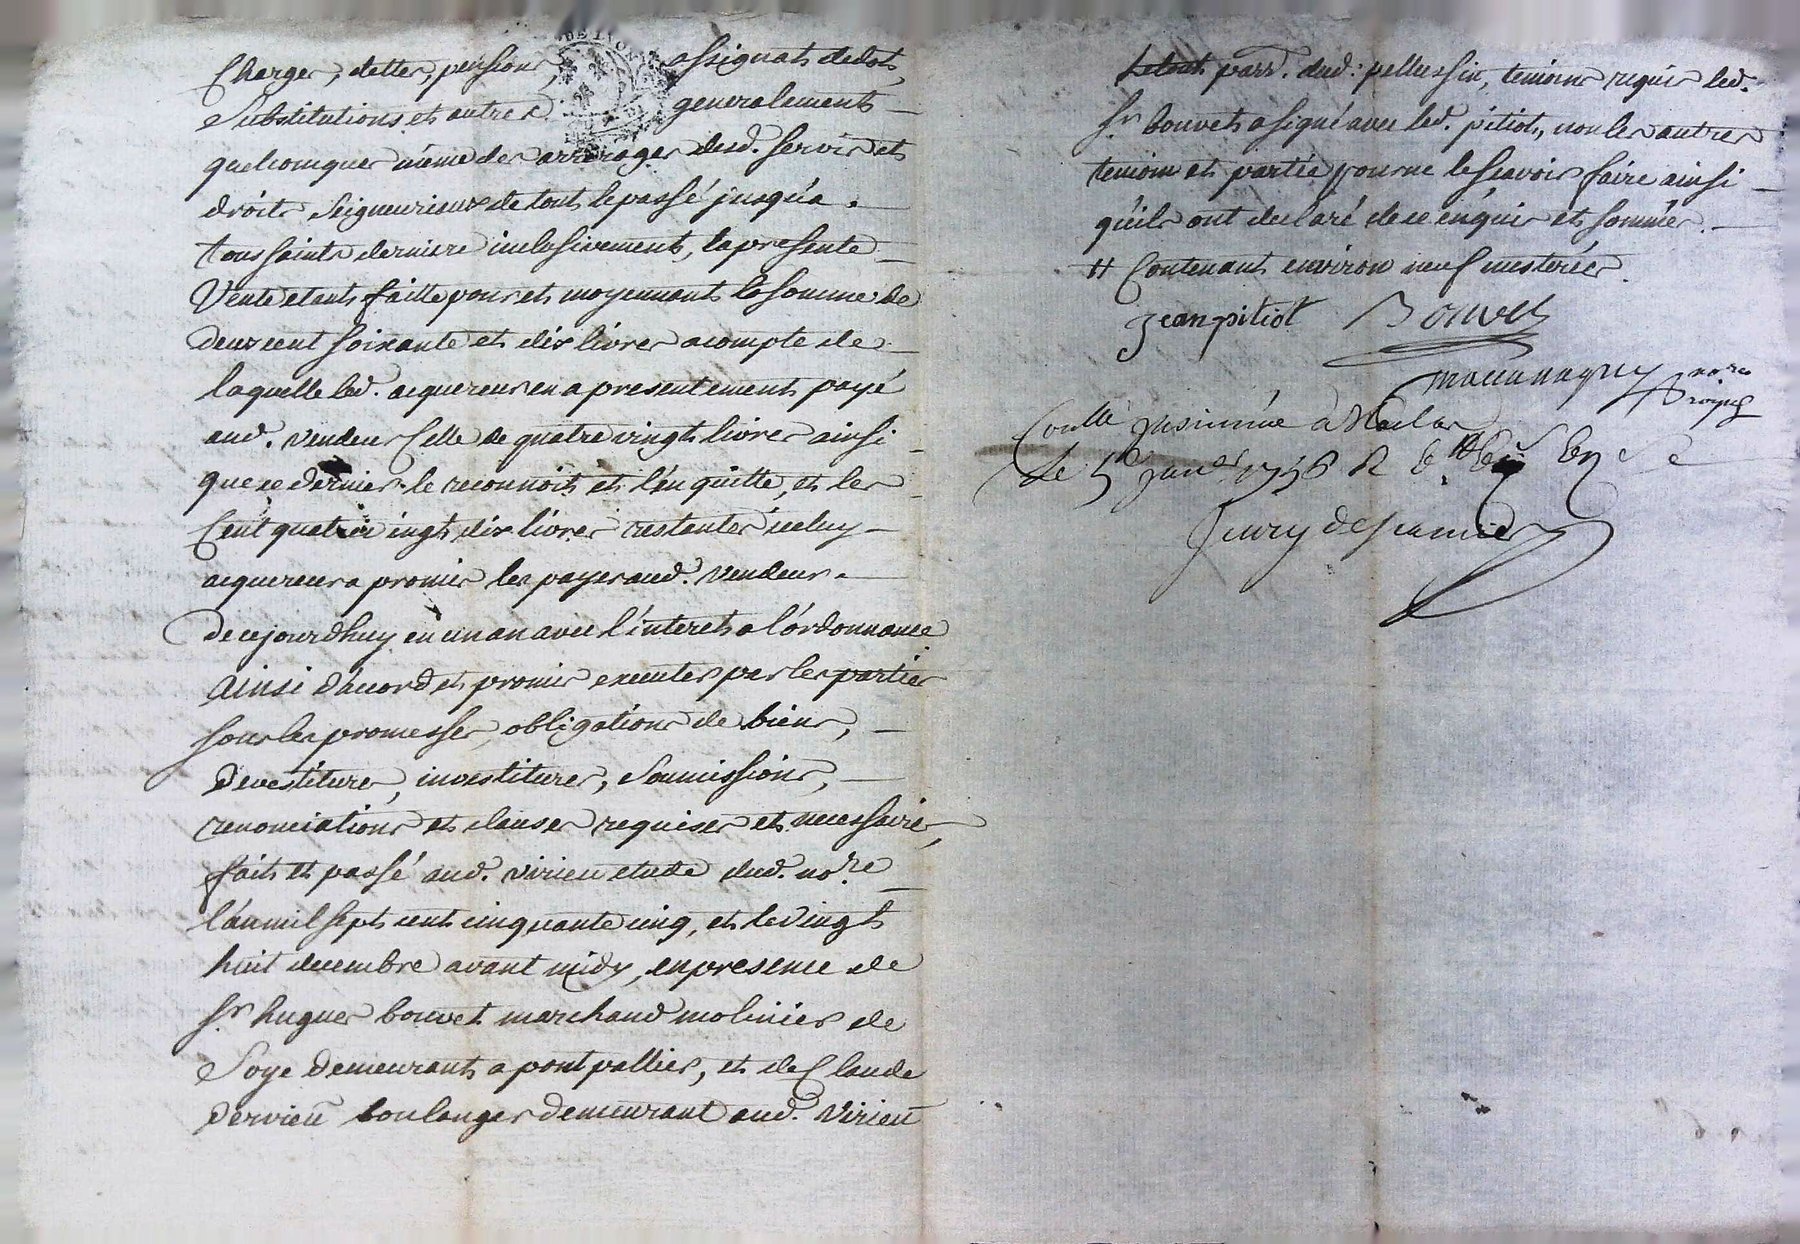 Charges, dettes, pensions, assignats de dots,
substitutions et autres generalements
quelconques même des arrerages desd. servis et
droits seigneuriaux de tout le passé jusqu'a
toussaints derniere inclusivement, la presente
Vente etant faitte pour et moyennant la somme de
deux cent soixante et dix livres acompte de
laquelle led. acquereur en a presentement payé
aud. vendeur Celle de quatre vingt livres ainsi
que ce dernier le reconnoit et l'en quitte, et les
Cent quatre vingt dix livres restantes iceluy
acquereur a promis les payer aud. vendeur
de cejourdhuy en un an avec l'interets a l'ordonnance
Ainsi d'accord et promis executer par les parties
sous les promesses, obligations de biens,
devestitures, investitures, soumissions,
renonciations et clauses requises et necessaires,
fait et passé aud. virieu etude dud. no.re
l'an mil sept cent cinquante cinq, et le vingt
huit decembre avant midy, en presence de
sr. hugues bouvet marchand molinier de
Soye demeurant a pont pallier, et de Claude
dervieu boulanger demeurant aud. virieu
parr. dud: pellussin, temoins requis led.
sr. bouvet a signé avec led. pitiot, non les autres
temoin et partie pour ne le scavoir faire ainsi
qu'ils ont declaré de ce enquis et sommés.
# Contenant environ neuf mesterées.
Jean pitiot Bouvet
no.re royal
Con.lle insinuée a Maclas
le 5e janer 1756 R